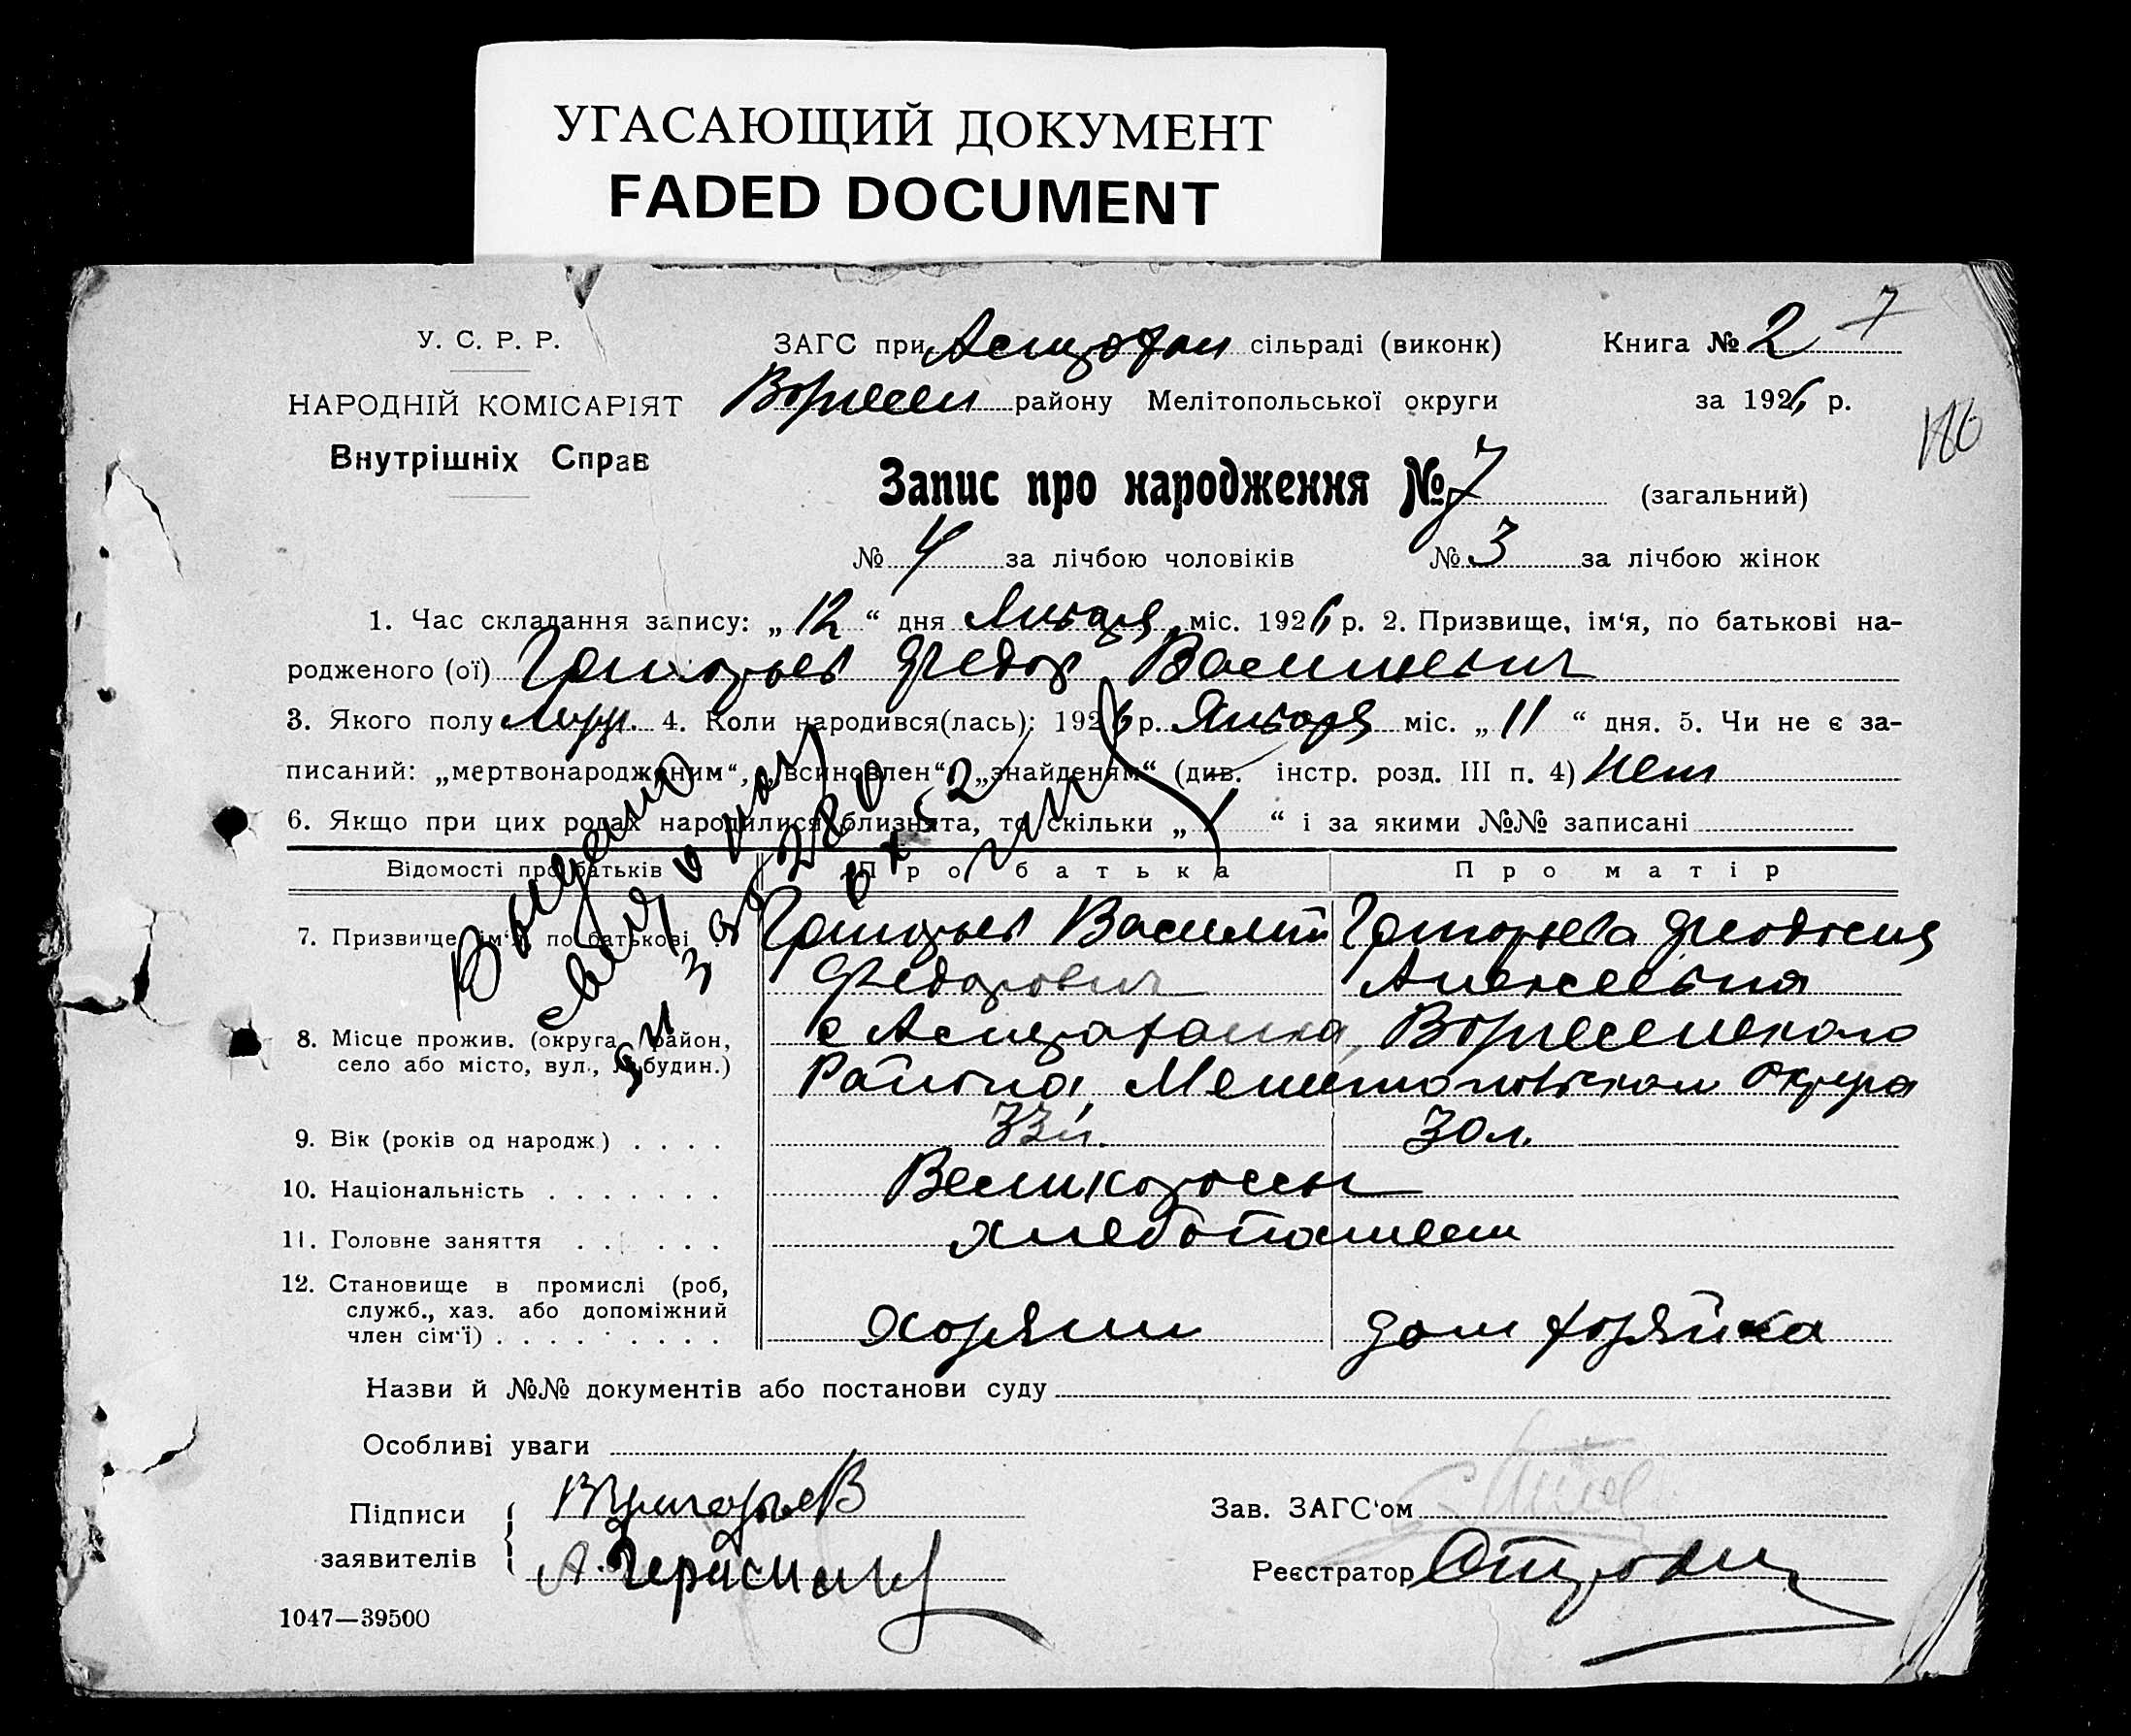 УГАСАЮЩИЙ ДОКУМЕНТ
FADED DOCUMENT
У. С. Р. Р.
НАРОДНІЙ КОМІСАРІЯТ
Внутрішніх Справ
ЗАГС при Астрахан сільраді (виконк)
району Мелітопольської округи
Книга № 2 7
за 1926 р.
186
Запис про народження № 7 (загальний)
№ 4 за лічбою чоловіків № 3 за лічбою жінок
1. Час складання запису: „12“ дня Января міс. 1926 р. 2. Призвище, ім‘я, по батькові на-
родженого (ої) Григорьев Федор Васильевич
3. Якого полу муж. 4. Коли народився(лась): 1926 р. Января міс. „11“ дня. 5. Чи не є за-
писаний: „мертвонародженим“, „всиновлен“, „знайденям“ (див. інстр. розд. III п. 4) Нет
6. Якщо при цих родах народилися близнята, то скільки „1“ і за якими №№ записані
Відомості про батьків Про батька Про матір
7. Призвище, ім‘я, по батькові Григорьев Василий Григорьева Феодосия
Федорович Алексеевна
8. Місце прожив. (округа, район,
село або місто, вул., № будин.)
с Астраханка,
Района, Мелитопольского Округа
9. Вік (років од народж.) . . . . 33 л. 30 л.
10. Національність . . . . . . . Великороссы
11. Головне заняття . . . . . . Хлебопашест
12. Становище в промислі (роб,
служб., хаз. або допоміжний
член сім‘ї) . . . . . . . . . Хозяин дом хозяйка
Назви й №№ документів або постанови суду
Особливі уваги
Підписи
заявителів
ВГригорьеВ
Зав. ЗАГС‘ом
Реєстратор
1047—39500
Выдано